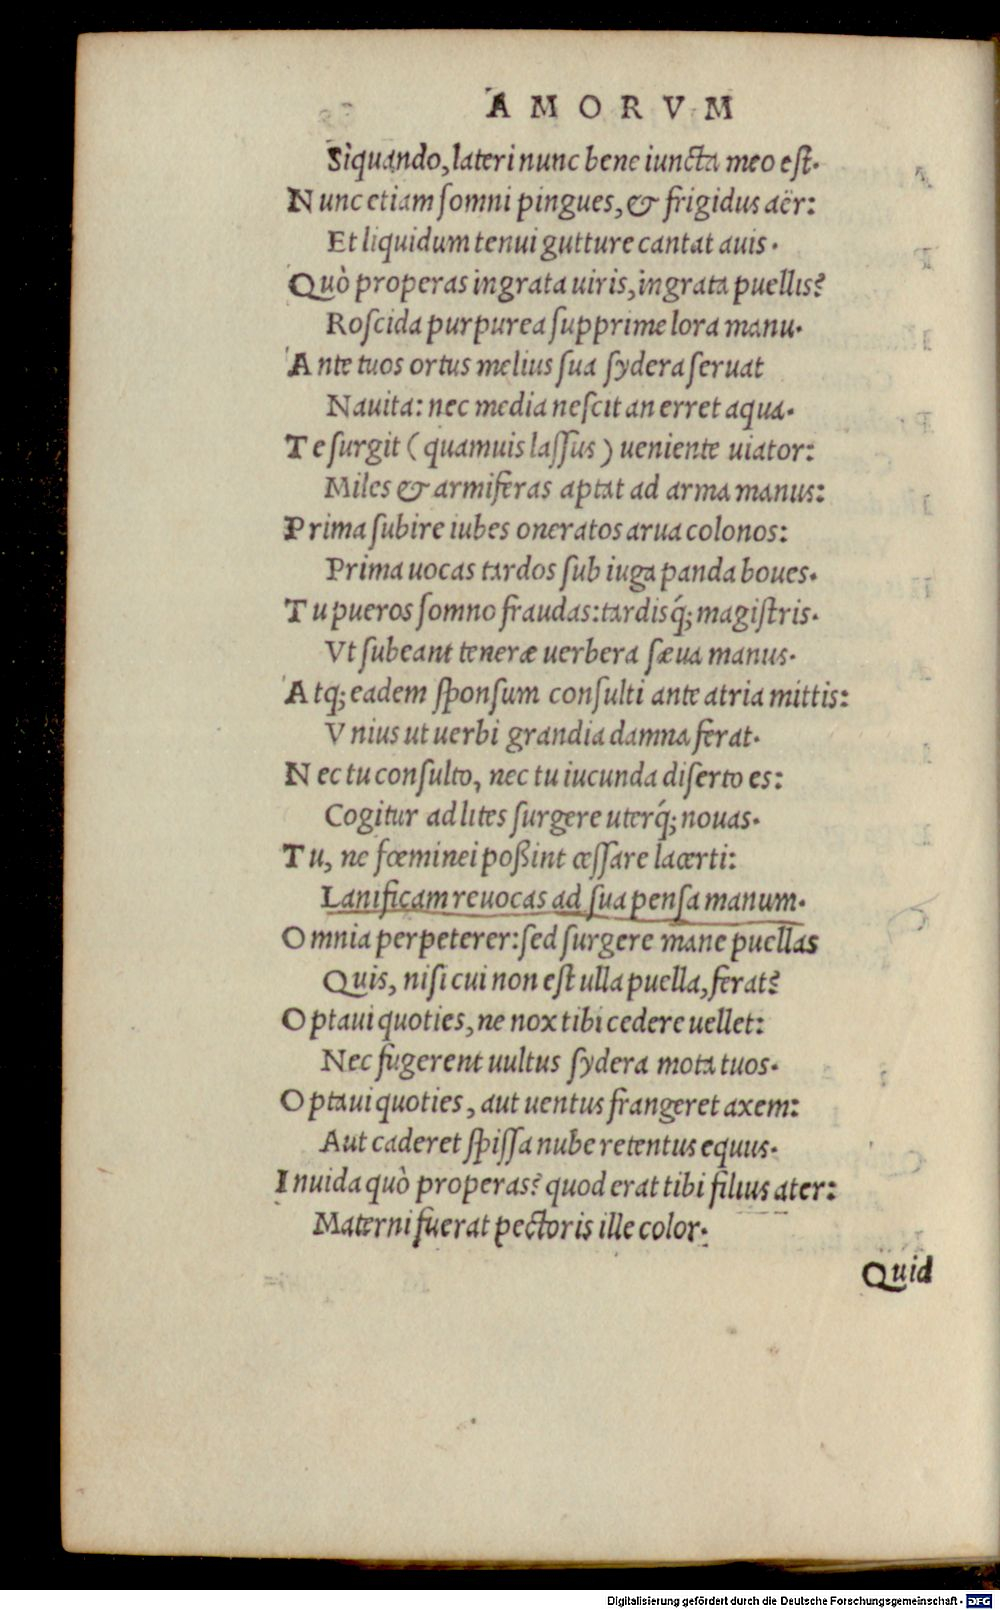 AMORVM
Sìquando, lateri nunc bene iuncta meo est.
Nunc etiam somni pingues, & frigidus aër:
Et liquidum tenui gutture cantat auis.
Quò properas ingrata uiris, ingrata puellis?
Roscida purpurea supprime lora manu.
Ante tuos ortus melius sua sydera seruat
Nauita: nec media nescit an erret aqua.
Te surgit (quamuis lassus) ueniente uiator:
Miles & armiferas aptat ad arma manus:
Prima subire iubes oneratos arua colonos:
Prima uocas tardos sub iuga panda boues.
Tu pueros somno fraudas: tardisq́; magistris.
Vt subeant teneræ uerbera sæua manus.
Atq; eadem sponsum consulti ante atria mittis:
Vnius ut uerbi grandia damna ferat.
Nec tu consulto, nec tu iucunda diserto es:
Cogitur ad lites surgere uterq́; nouas.
Tu, ne fœminei poßint cessare lacerti:
Lanificam reuocas ad sua pensa manum.
Omnia perpeterer: sed surgere mane puellas
Quis, nisi cui non est ulla puella, ferat?
Optaui quoties, ne nox tibi cedere uellet:
Nec fugerent uultus sydera mota tuos.
Optaui quoties, aut uentus frangeret axem:
Aut caderet spissa nube retentus equus.
Inuida quò properas? quod erat tibi filius ater:
Materni fuerat pectoris ille color.
Quid
Digitalisierung gefördert durch die Deutsche Forschungsgemeinschaft - DFG